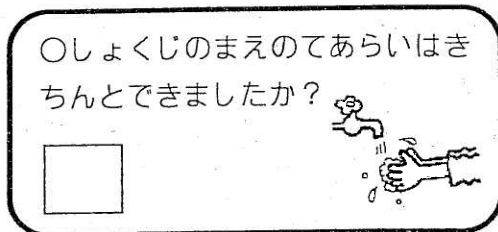 〇しょくじのまえのてあらいはき
ちんとできましたか？